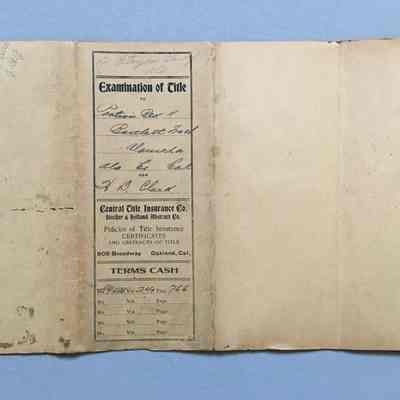 Examination of Title
TO
Portion Blk
Bartlett Tract
Ala Co Cal
FOR
H. D. Clark
Central Title Insurance Co.
Stocker & Holland Abstract Co.
Policies of Title Insurance
CERTIFICATES
AND ABSTRACTS OF TITLE
808 Broadway Oakland, Cal.
TERMS CASH
Vol. 246 Page 766
No. Vol. Page
No. Vol. Page
No. Vol. Page